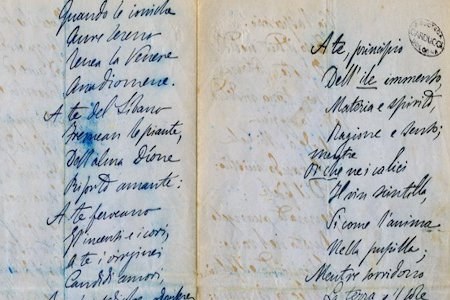 Quando le ioniche
Aure serene
la Venere
Anadiomene.
A te del Libano
Fremean le piante,
Dell'alma Dïone
Risorto amante:
A te ferveano
e i cori,
A te i virginei
Candidi amori,
A te, principio
Dell'ile immenso,
Materia e spirito,
Ragione e senso;
mentre
Or che nei calici
Il vin scintilla,
Sì come l'anima
Nella pupilla,
Mentre sorridono
La terra e il sole
CARDUCCI